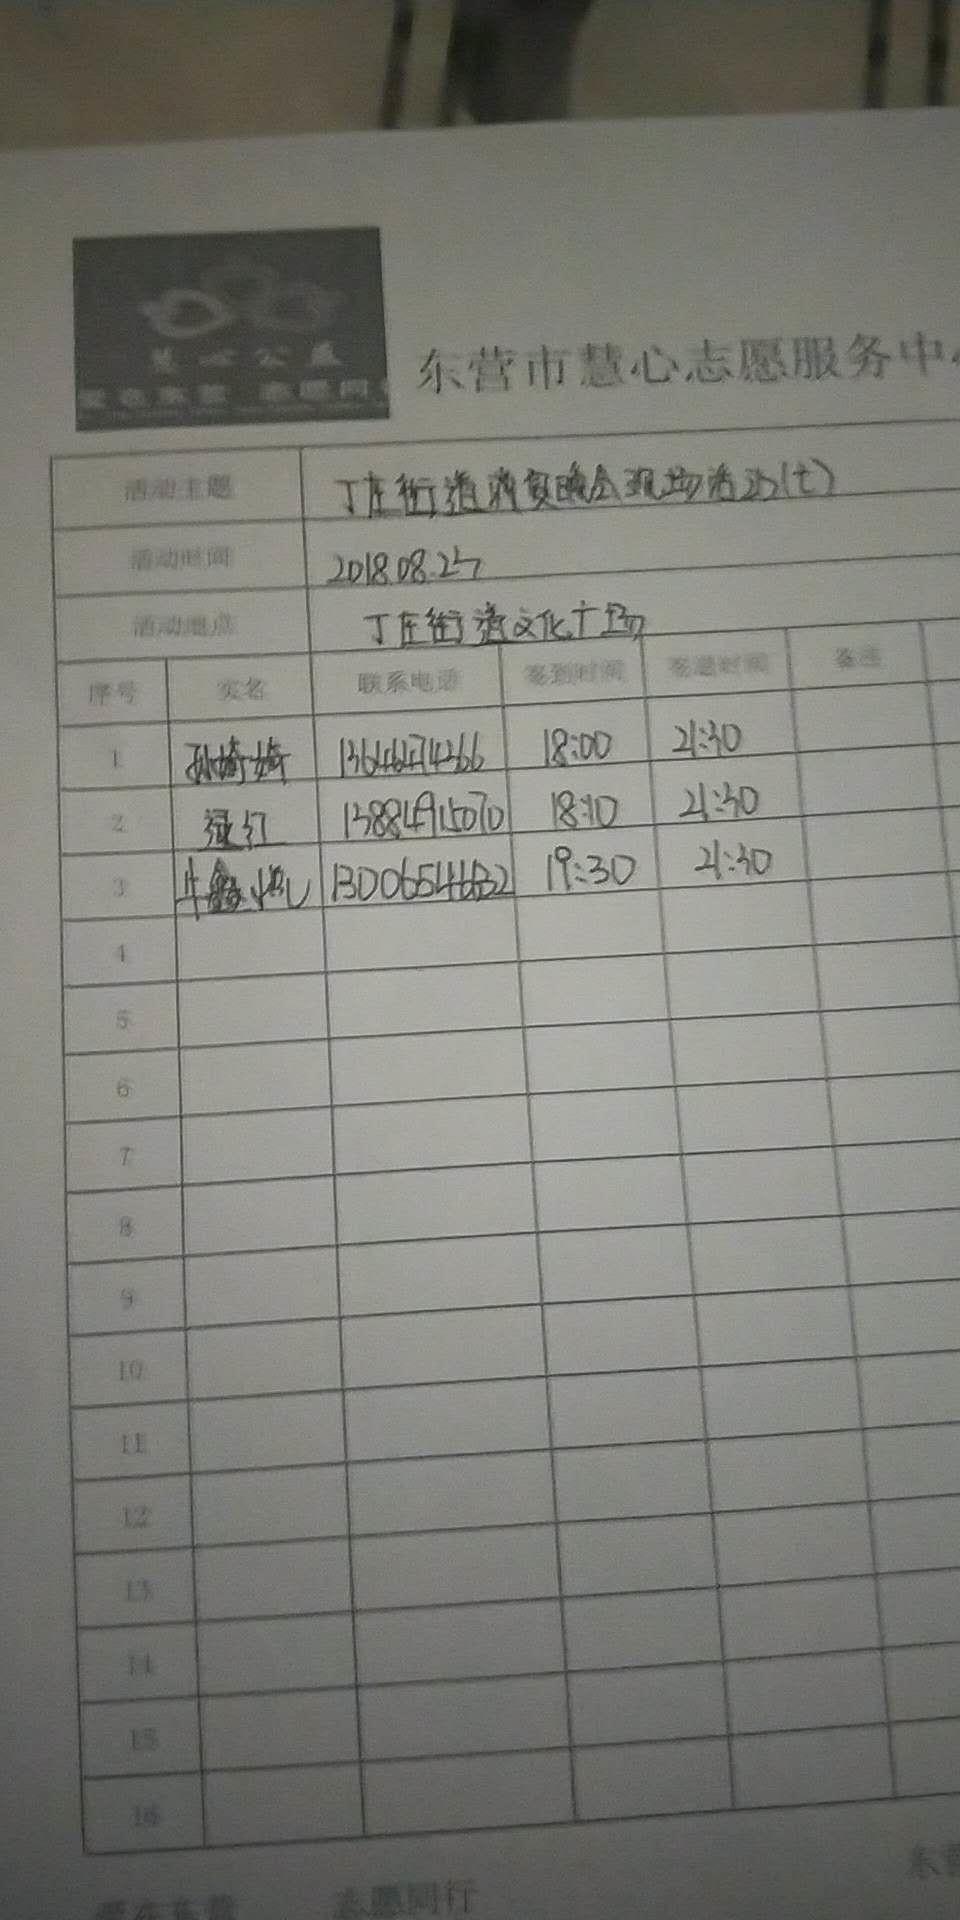 慧心公益
爱在东营 志愿同行
东营市慧心志愿服务中
活动主题 丁庄街道消夏晚会现场活动(七)
活动时间 2018.08.25
活动地点 丁庄街道文化广场
序号 实名 联系电话 签到时间 签退时间 备注
1 孙婷婷 13646474266 18:00 21:30
2 红 18:10 21:30
3 牛鑫悦 19:30 21:30
4
5
6
7
8
9
10
11
12
13
14
15
16
爱在东营 志愿同行 东营